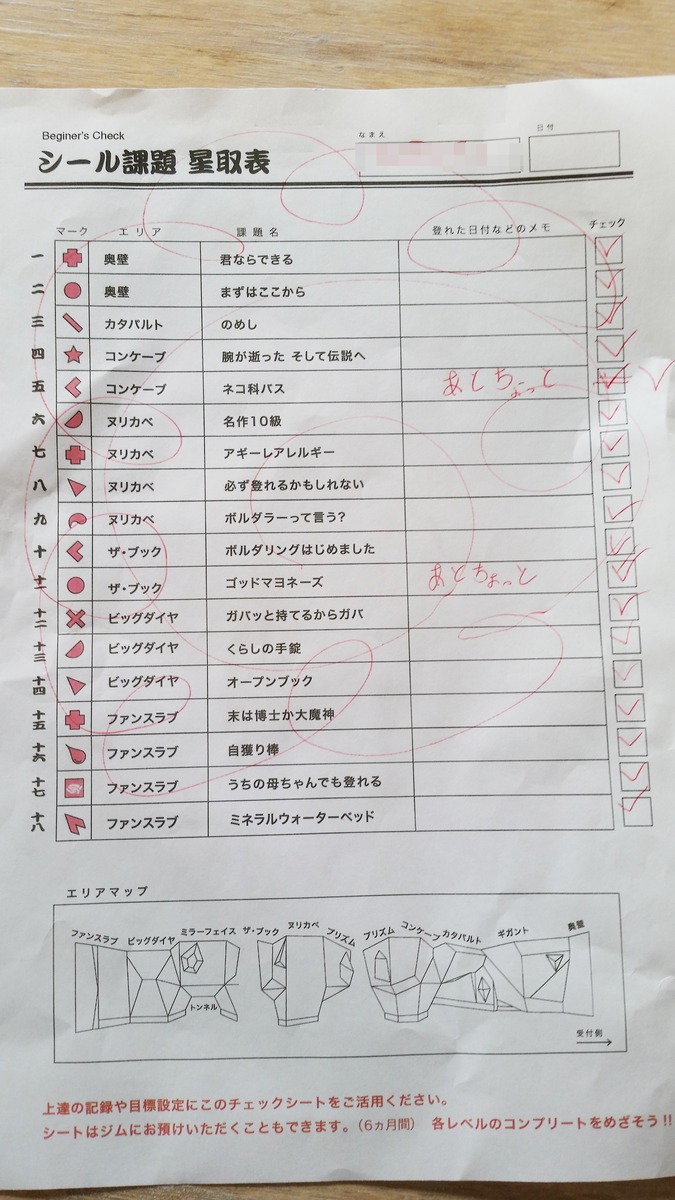 Beginer's Check
シール課題 星取表
なまえ
日付
マーク エリア 課題名 登れた日付などのメモ チェック
一 奥壁 君ならできる
二 奥壁 まずはここから
三 カタパルト のめし
四 コンケーブ 腕が逝った そして伝説へ
五 コンケーブ ネコ科バス あとちょっと
六 ヌリカベ 名作10級
七 ヌリカベ アギーレアレルギー
八 ヌリカベ 必ず登れるかもしれない
九 ヌリカベ ボルダラーって言う?
十 ザ・ブック ボルダリングはじめました
十一 ザ・ブック ゴッドマヨネーズ あとちょっと
十二 ビッグダイヤ ガバッと持てるからガバ
十三 ビッグダイヤ くらしの手錠
十四 ビッグダイヤ オープンブック
十五 ファンスラブ 末は博士か大魔神
十六 ファンスラブ 自獲り棒
十七 ファンスラブ うちの母ちゃんでも登れる
十八 ファンスラブ ミネラルウォーターベッド
エリアマップ
ファンスラブ ビッグダイヤ ミラーフェイス ザ・ブック ヌリカベ プリズム プリズム コンケーブ カタパルト ギガント 奥壁
トンネル
受付側
上達の記録や目標設定にこのチェックシートをご活用ください。
シートはジムにお預けいただくこともできます。(6ヵ月間) 各レベルのコンプリートをめざそう!!